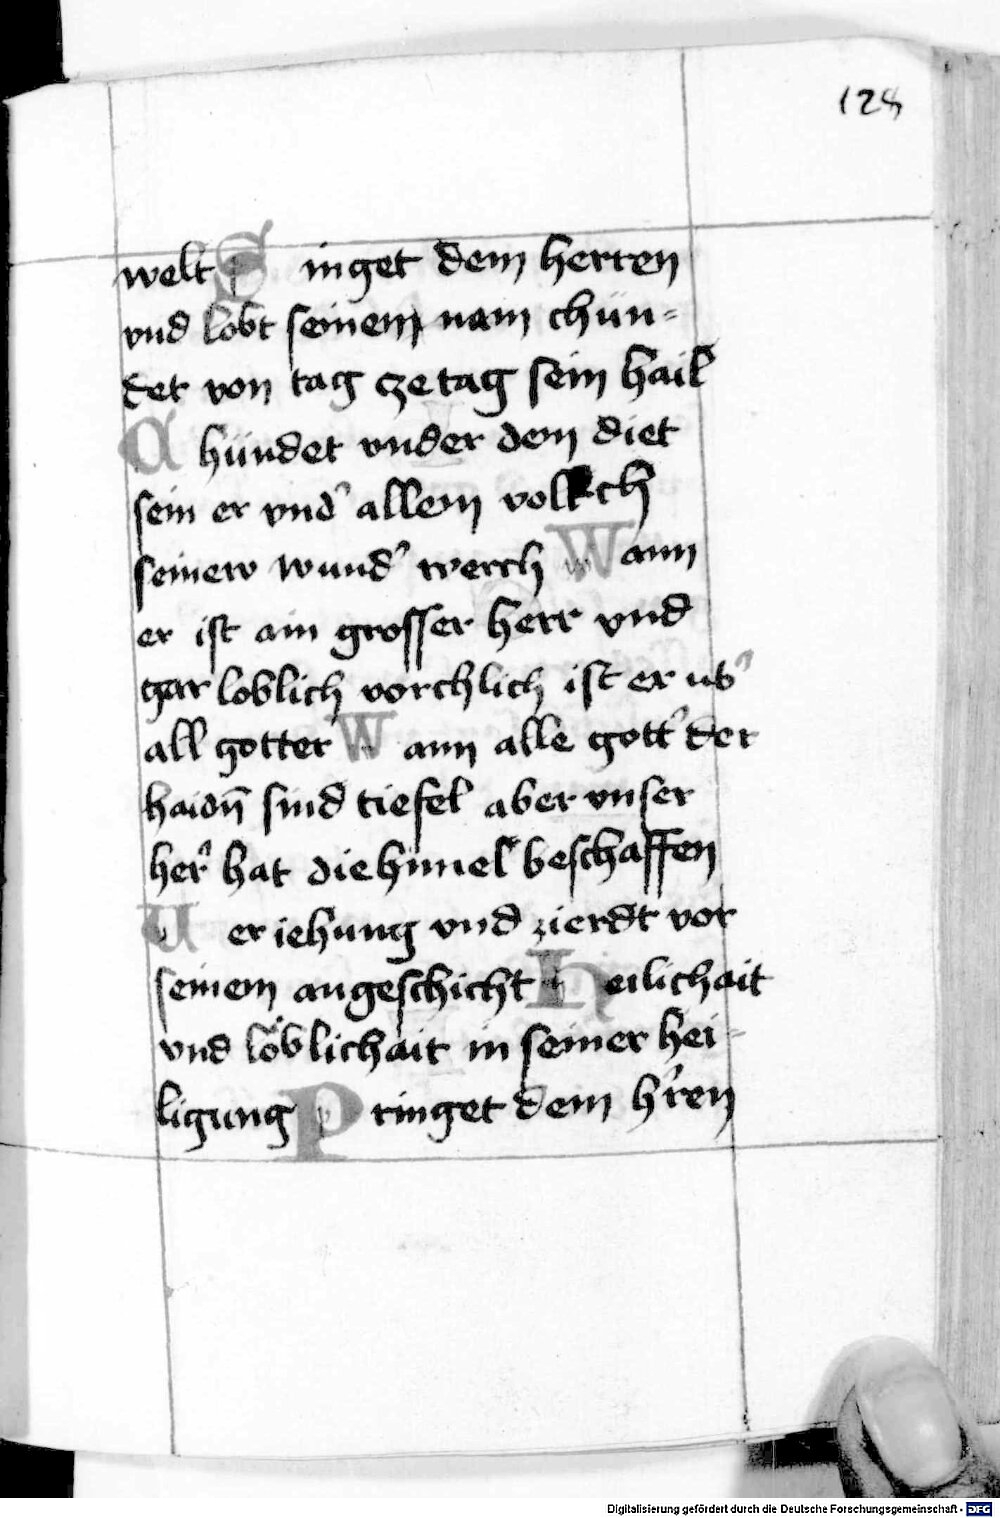 128
welt Singet dem herren
vnd lobt seinem nam chün-
det von tag ze tag sein hail
Chündet vnder dem diet
sein er vnd' allem volkch
seinew wund' werch Wann
er ist ain grosser herr vnd
gar loblich vorchlich ist er ub'
all gotter Wann alle gott' der
haidn̄ sind tiefel aber vnser
her' hat die himel beschaffen
Ueriehung vnd zierdt vor
seinem angeschicht Heilichait
vnd löblichait in seiner hei-
ligung Pringet dem h'ren
Digitalisierung gefördert durch die Deutsche Forschungsgemeinschaft - DFG